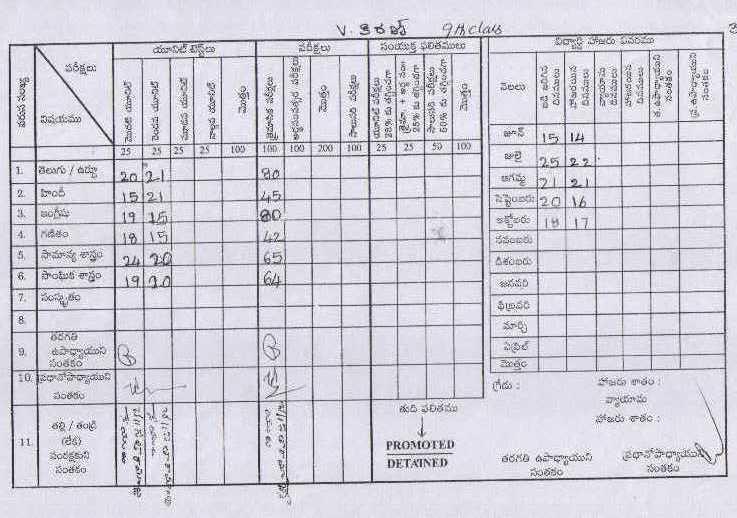 V. కిరణ్ 9th class
యూనిట్ టెస్ట్‌లు పరీక్షలు సంయుక్త ఫలితములు
వరుస సంఖ్య
పరీక్షలు
విషయము
మొదటి యూనిట్
రెండవ యూనిట్
మూడవ యూనిట్
నాల్గవ యూనిట్
మొత్తం
త్రైమాసిక పరీక్షలు
అర్థసంవత్సర పరీక్షలు
మొత్తం
సాలుసరి పరీక్షలు
యూనిట్ పరీక్షలు 25% కు తగ్గించగా
త్రైమా + అర్ధ సం 25% కు తగ్గించగా
సాలుసరి పరీక్షలు 50% కు తగ్గించగా
మొత్తం
25 25 25 25 100 100 100 200 100 25 25 50 100
1. తెలుగు / ఉర్దూ 20 21 80
2. హిందీ 15 21 45
3. ఇంగ్లీషు 19 15 80
4. గణితం 18 15 42
5. సామాన్య శాస్త్రం 24 20 65
6. సాంఘిక శాస్త్రం 19 20 64
7. సంస్కృతం
8.
9. తరగతి
ఉపాధ్యాయుని
సంతకం
10. ప్రధానోపాధ్యాయుని
సంతకం
11. తల్లి / తండ్రి
(లేక)
సంరక్షకుని
సంతకం
తుది ఫలితము
PROMOTED
DETAINED
విద్యార్థి హాజరు వివరము
నెలలు
బడి జరిగిన దినములు
హాజరయిన దినములు
వ్యాయామ దినములు
హాజరయిన దినములు
ఉపాధ్యాయుని సంతకం
జూన్ 15 14
జులై 25 22
ఆగస్టు 21 21
సెప్టెంబరు 20 16
అక్టోబరు 18 17
నవంబరు
డిశంబరు
జనవరి
ఫిబ్రవరి
మార్చి
ఏప్రిల్
మొత్తం
గ్రేడు : హాజరు శాతం :
వ్యాయామ
హాజరు శాతం :
తరగతి ఉపాధ్యాయుని
సంతకం
ప్రధానోపాధ్యాయుని
సంతకం